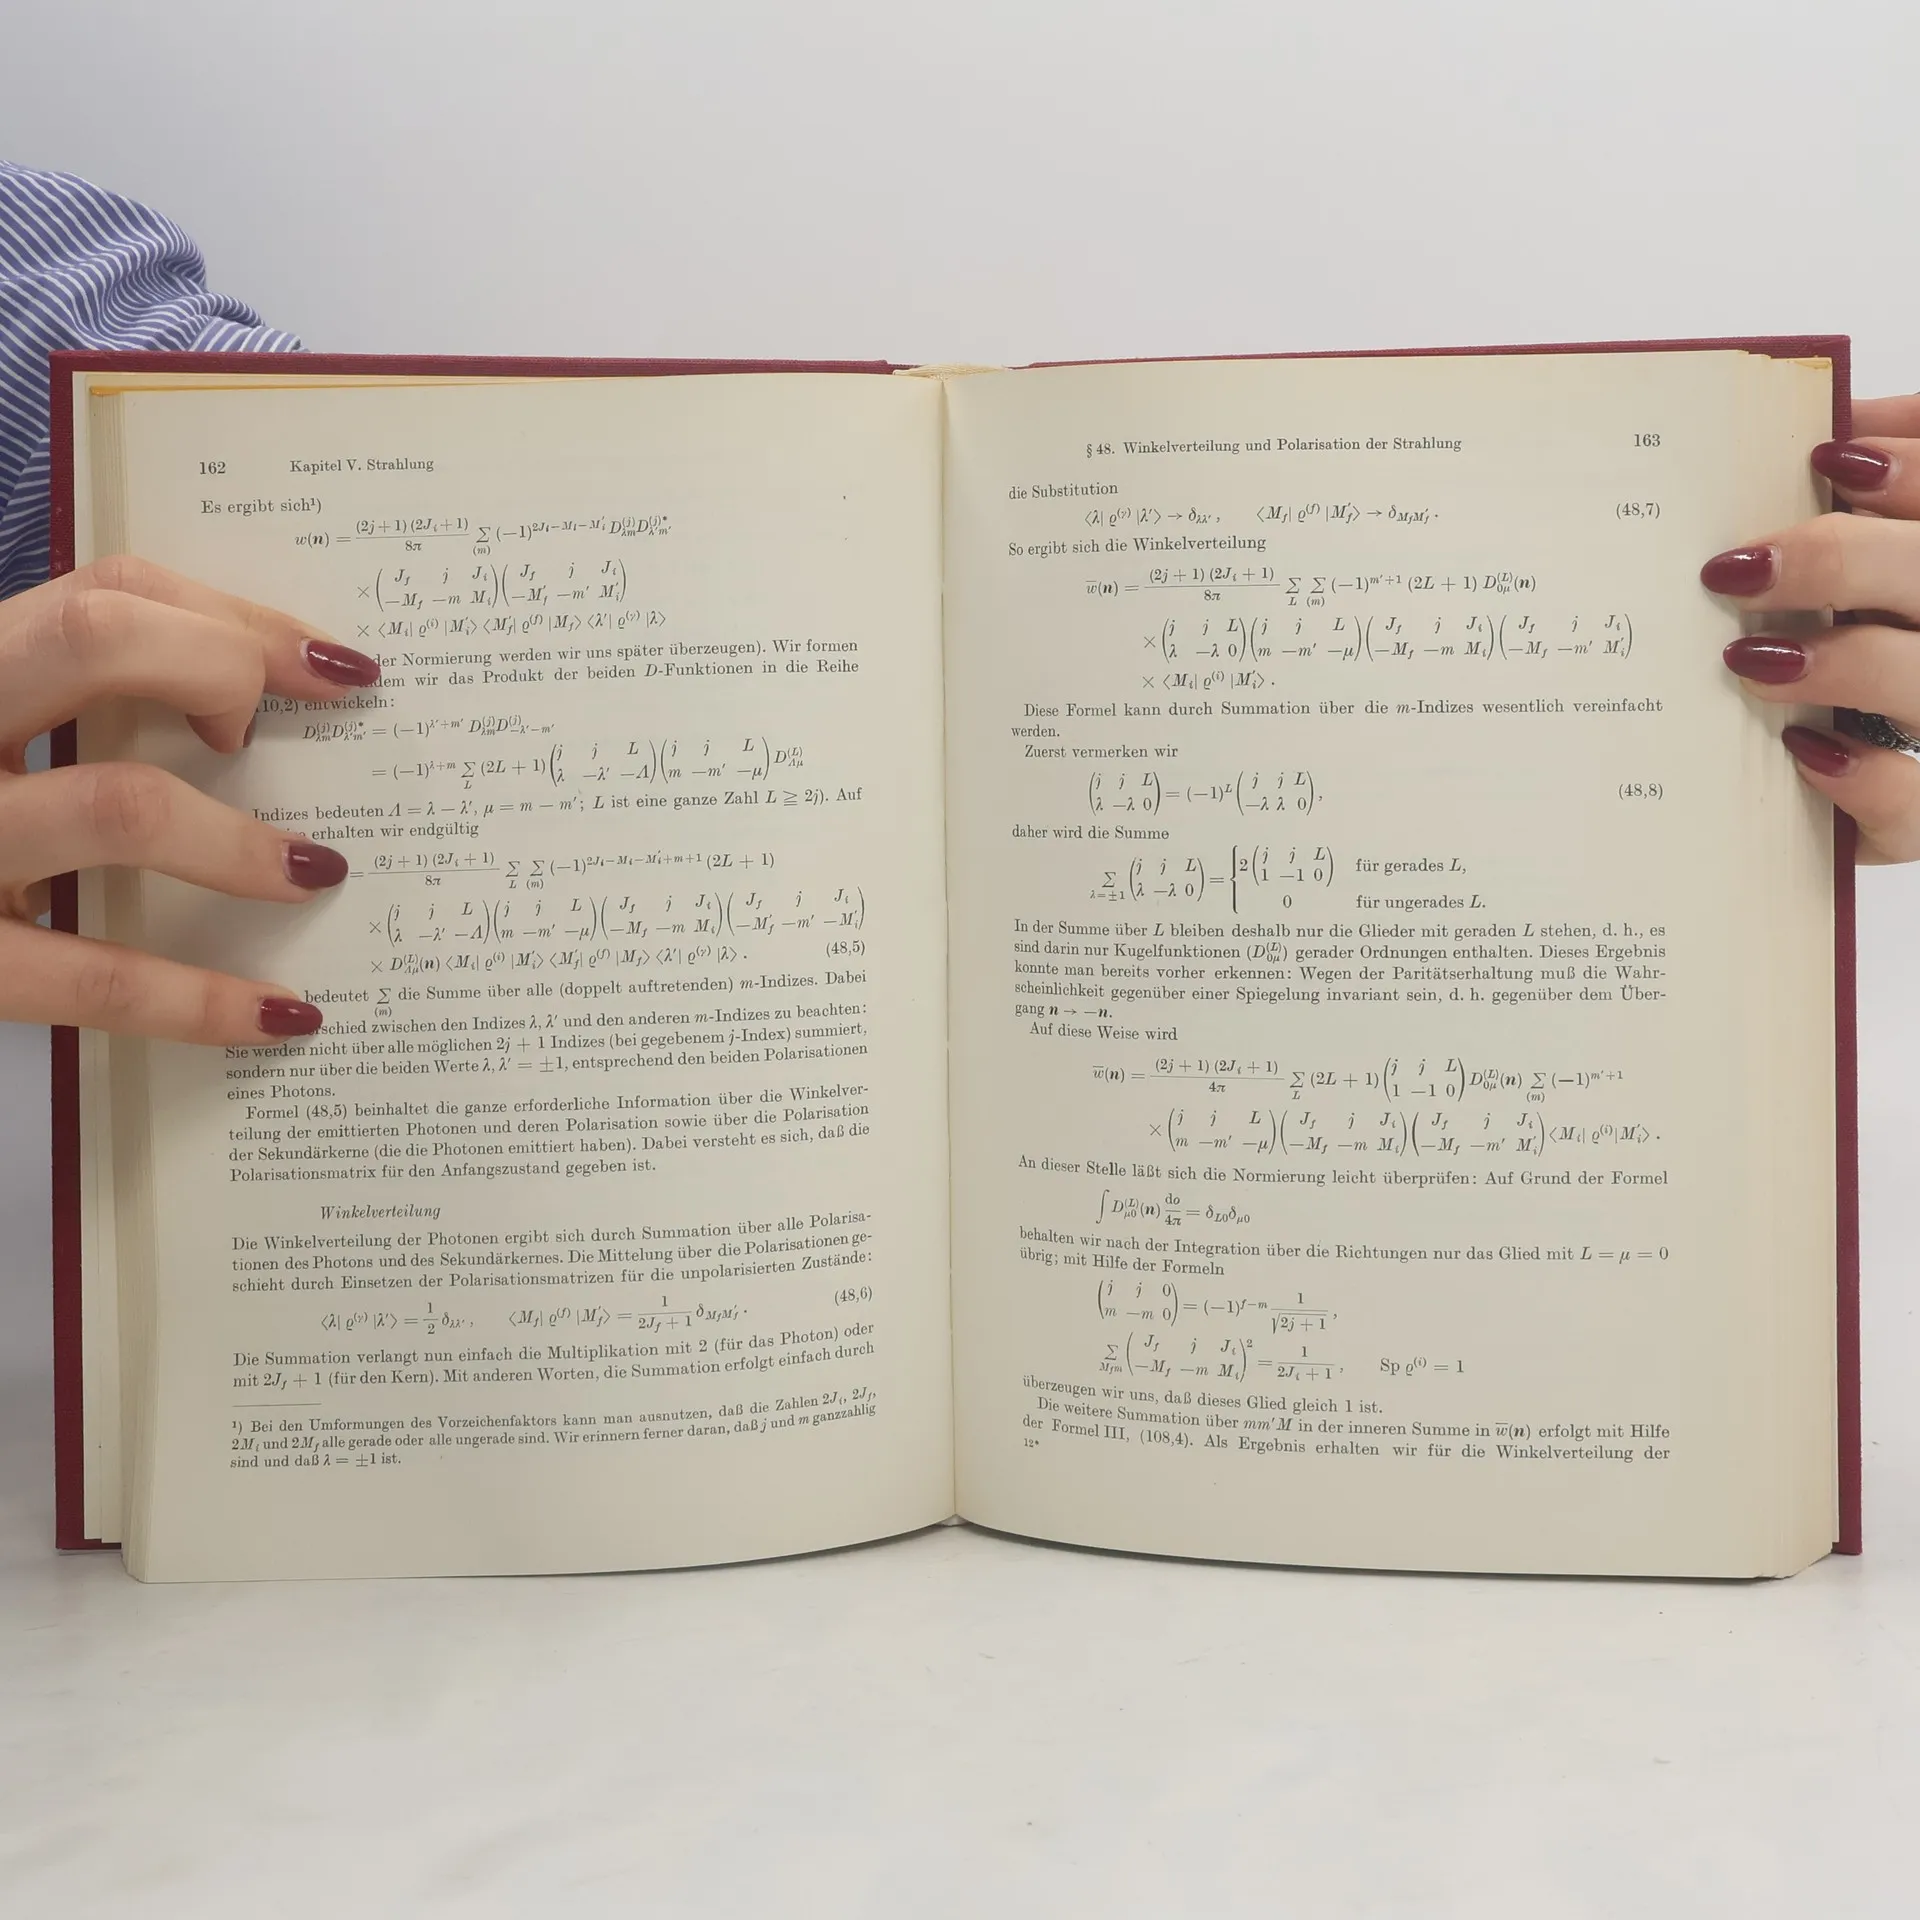 162 Kapitel V. Strahlung
Es ergibt sich¹)
w(n) = (2j+1)(2J_i+1)/8π ∑_(m) (−1)^{2J_i−M_i−M_i′} D^{(j)}_{λm} D^{(j)*}_{λ′m′}
× (J_f j J_i; −M_f −m M_i) (J_f j J_i; −M_f′ −m′ M_i′)
× ⟨M_i| ϱ^{(i)} |M_i′⟩ ⟨M_f′| ϱ^{(f)} |M_f⟩ ⟨λ′| ϱ^{(γ)} |λ⟩
der Normierung werden wir uns später überzeugen). Wir formen
wir das Produkt der beiden D-Funktionen in die Reihe
10,2) entwickeln:
D^{(j)}_{λm} D^{(j)*}_{λ′m′} = (−1)^{λ′+m′} D^{(j)}_{λm} D^{(j)}_{−λ′−m′}
= (−1)^{λ+m} ∑_L (2L + 1) (j j L; λ −λ′ −Λ) (j j L; m −m′ −μ) D^{(L)}_{Λμ}
Indizes bedeuten Λ = λ − λ′, μ = m − m′; L ist eine ganze Zahl L ≧ 2j). Auf
erhalten wir endgültig
= (2j + 1) (2J_i + 1)/8π ∑_L ∑_(m) (−1)^{2J_i−M_i−M_i′+m+1} (2L + 1)
× (j j L; λ −λ′ −Λ) (j j L; m −m′ −μ) (J_f j J_i; −M_f −m M_i) (J_f j J_i; −M_f′ −m′ −M_i′)
× D^{(L)}_{Λμ}(n) ⟨M_i| ϱ^{(i)} |M_i′⟩ ⟨M_f′| ϱ^{(f)} |M_f⟩ ⟨λ′| ϱ^{(γ)} |λ⟩ . (48,5)
bedeutet ∑_(m) die Summe über alle (doppelt auftretenden) m-Indizes. Dabei
zwischen den Indizes λ, λ′ und den anderen m-Indizes zu beachten:
Sie werden nicht über alle möglichen 2j + 1 Indizes (bei gegebenem j-Index) summiert,
sondern nur über die beiden Werte λ, λ′ = ±1, entsprechend den beiden Polarisationen
eines Photons.
Formel (48,5) beinhaltet die ganze erforderliche Information über die Winkelver-
teilung der emittierten Photonen und deren Polarisation sowie über die Polarisation
der Sekundärkerne (die die Photonen emittiert haben). Dabei versteht es sich, daß die
Polarisationsmatrix für den Anfangszustand gegeben ist.
Winkelverteilung
Die Winkelverteilung der Photonen ergibt sich durch Summation über alle Polarisa-
tionen des Photons und des Sekundärkernes. Die Mittelung über die Polarisationen ge-
schieht durch Einsetzen der Polarisationsmatrizen für die unpolarisierten Zustände:
⟨λ| ϱ^{(γ)} |λ′⟩ = 1/2 δ_{λλ′} , ⟨M_f| ϱ^{(f)} |M_f′⟩ = 1/(2J_f + 1) δ_{M_f M_f′} . (48,6)
Die Summation verlangt nun einfach die Multiplikation mit 2 (für das Photon) oder
mit 2J_f + 1 (für den Kern). Mit anderen Worten, die Summation erfolgt einfach durch
¹) Bei den Umformungen des Vorzeichenfaktors kann man ausnutzen, daß die Zahlen 2J_i, 2J_f,
2M_i und 2M_f alle gerade oder alle ungerade sind. Wir erinnern ferner daran, daß j und m ganzzahlig
sind und daß λ = ±1 ist.
§ 48. Winkelverteilung und Polarisation der Strahlung 163
die Substitution
⟨λ| ϱ^{(γ)} |λ′⟩ → δ_{λλ′} , ⟨M_f| ϱ^{(f)} |M_f′⟩ → δ_{M_f M_f′} . (48,7)
So ergibt sich die Winkelverteilung
w̄(n) = (2j + 1) (2J_i + 1)/8π ∑_L ∑_(m) (−1)^{m′+1} (2L + 1) D^{(L)}_{0μ}(n)
× (j j L; λ −λ 0) (j j L; m −m′ −μ) (J_f j J_i; −M_f −m M_i) (J_f j J_i; −M_f −m′ M_i′)
× ⟨M_i| ϱ^{(i)} |M_i′⟩ .
Diese Formel kann durch Summation über die m-Indizes wesentlich vereinfacht
werden.
Zuerst vermerken wir
(j j L; λ −λ 0) = (−1)^L (j j L; −λ λ 0), (48,8)
daher wird die Summe
∑_{λ=±1} (j j L; λ −λ 0) = { 2 (j j L; 1 −1 0) für gerades L,
0 für ungerades L.
In der Summe über L bleiben deshalb nur die Glieder mit geraden L stehen, d. h., es
sind darin nur Kugelfunktionen (D^{(L)}_{0μ}) gerader Ordnungen enthalten. Dieses Ergebnis
konnte man bereits vorher erkennen: Wegen der Paritätserhaltung muß die Wahr-
scheinlichkeit gegenüber einer Spiegelung invariant sein, d. h. gegenüber dem Über-
gang n → −n.
Auf diese Weise wird
w̄(n) = (2j + 1) (2J_i + 1)/4π ∑_L (2L + 1) (j j L; 1 −1 0) D^{(L)}_{0μ}(n) ∑_(m) (−1)^{m′+1}
× (j j L; m −m′ −μ) (J_f j J_i; −M_f −m M_i) (J_f j J_i; −M_f −m′ M_i′) ⟨M_i| ϱ^{(i)} |M_i′⟩ .
An dieser Stelle läßt sich die Normierung leicht überprüfen: Auf Grund der Formel
∫ D^{(L)}_{μ0}(n) do/4π = δ_{L0} δ_{μ0}
behalten wir nach der Integration über die Richtungen nur das Glied mit L = μ = 0
übrig; mit Hilfe der Formeln
(j j 0; m −m 0) = (−1)^{j−m} 1/√(2j + 1) ,
∑_{M_f m} (J_f j J_i; −M_f −m M_i)² = 1/(2J_i + 1) , Sp ϱ^{(i)} = 1
überzeugen wir uns, daß dieses Glied gleich 1 ist.
Die weitere Summation über mm′M in der inneren Summe in w̄(n) erfolgt mit Hilfe
der Formel III, (108,4). Als Ergebnis erhalten wir für die Winkelverteilung der
12*